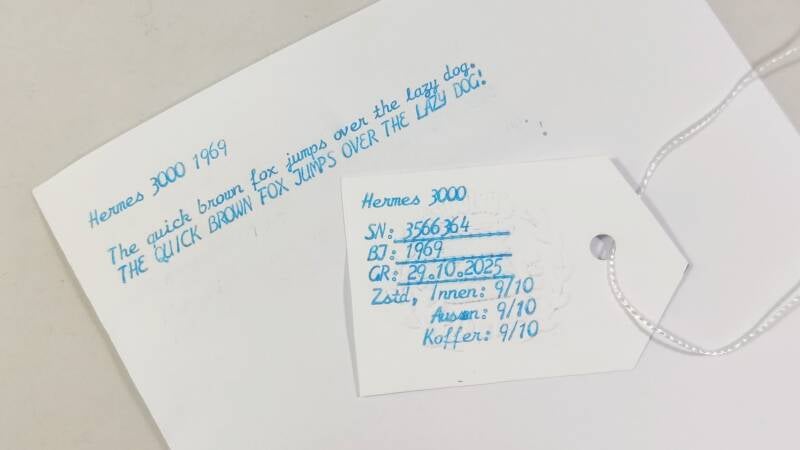 Hermes 3000 1969
The quick brown fox jumps over the lazy dog.
THE QUICK BROWN FOX JUMPS OVER THE LAZY DOG!
Hermes 3000
SN: 3566364
BJ: 1969
GR: 29.10.2025
Zstd, Innen: 9/10
9/10
Koffer: 9/10